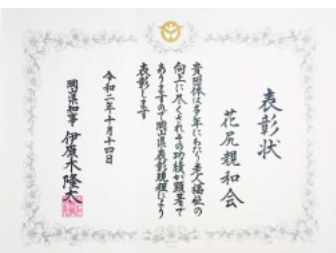 表彰状
花尻親和会
貴団体は多年にわたり老人福祉の
向上に尽くされその功績が顕著で
ありますので岡山県表彰規程により
表彰します
令和二年十月十四日
岡山県知事 伊原木隆太